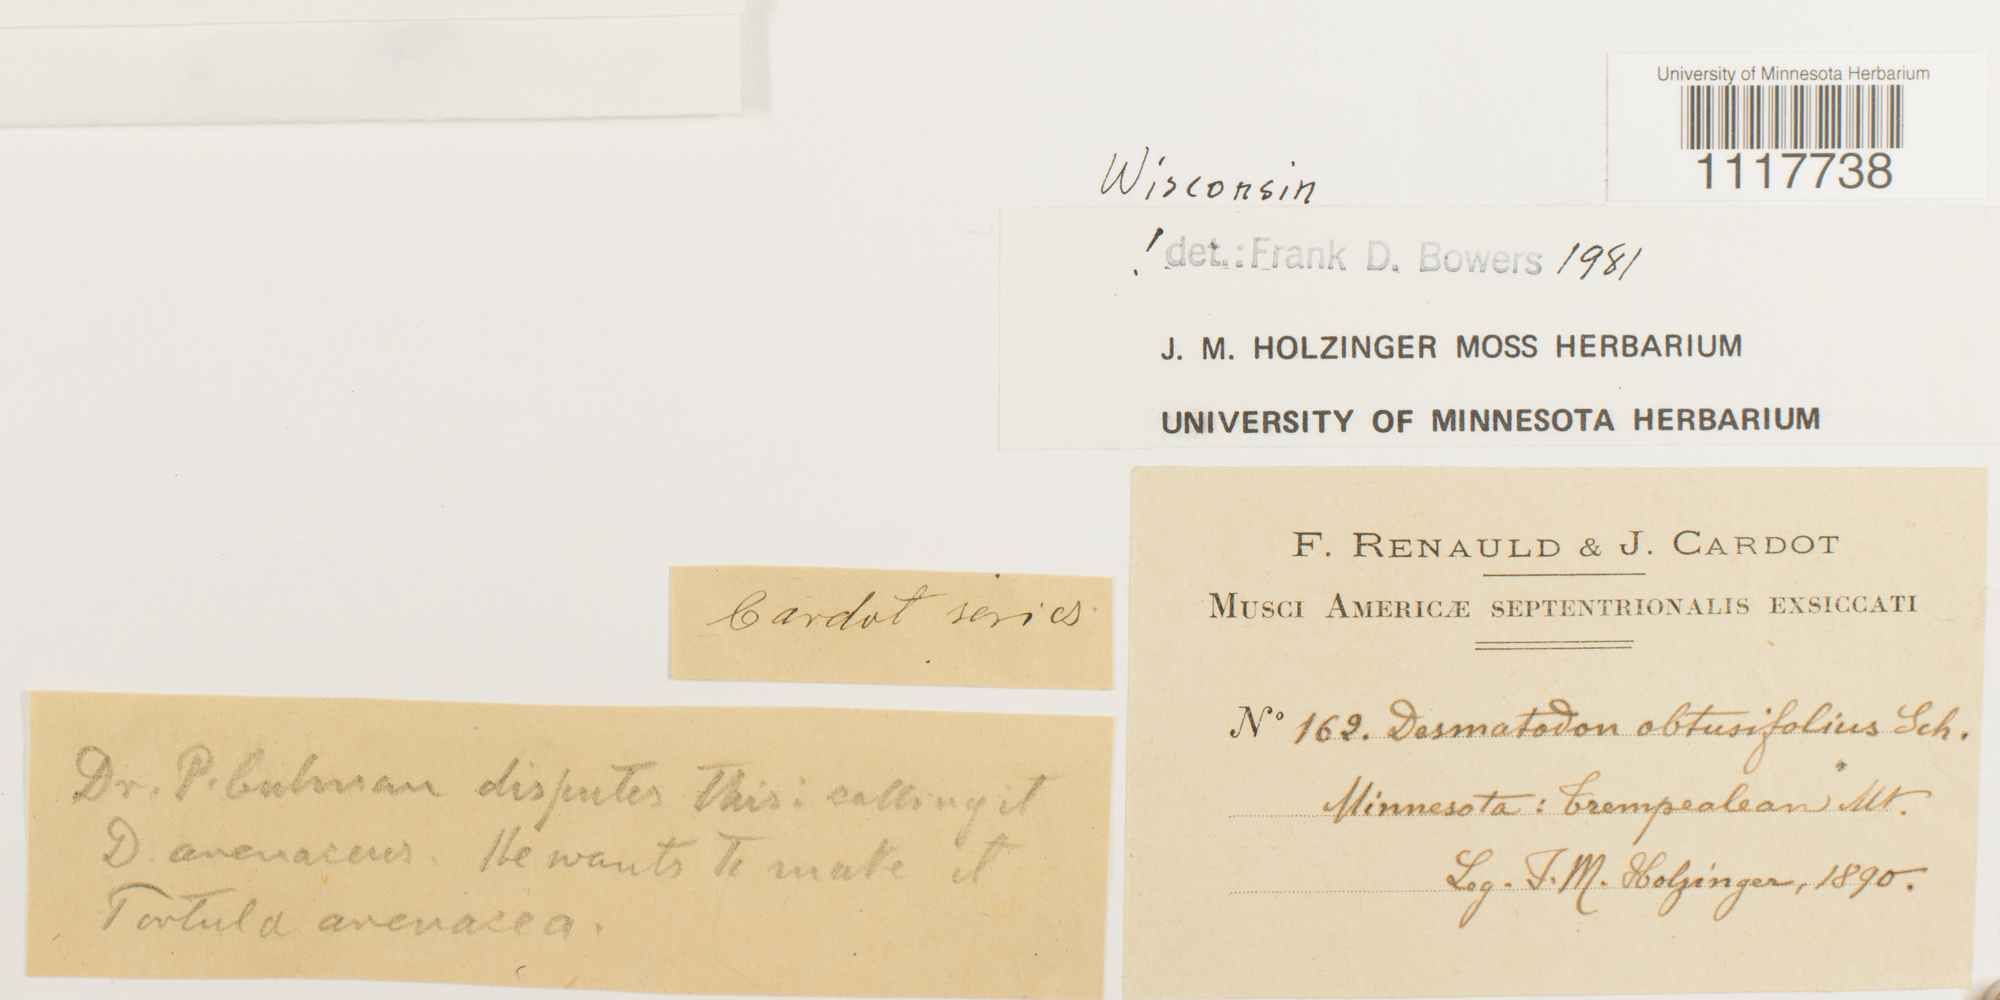 University of Minnesota Herbarium
1117738
Wisconsin
! det.: Frank D. Bowers 1981
J. M. HOLZINGER MOSS HERBARIUM
UNIVERSITY OF MINNESOTA HERBARIUM
F. RENAULD & J. CARDOT
MUSCI AMERICÆ SEPTENTRIONALIS EXSICCATI
N° 162. Desmatodon obtusifolius Sch.
Minnesota: Trempealean Mt.
Leg. J. M. Holzinger, 1890.
Cardot series
Dr. P. Culman disputes this: calling it
D. arenaceus. He wants to make it
Tortula arenacea.